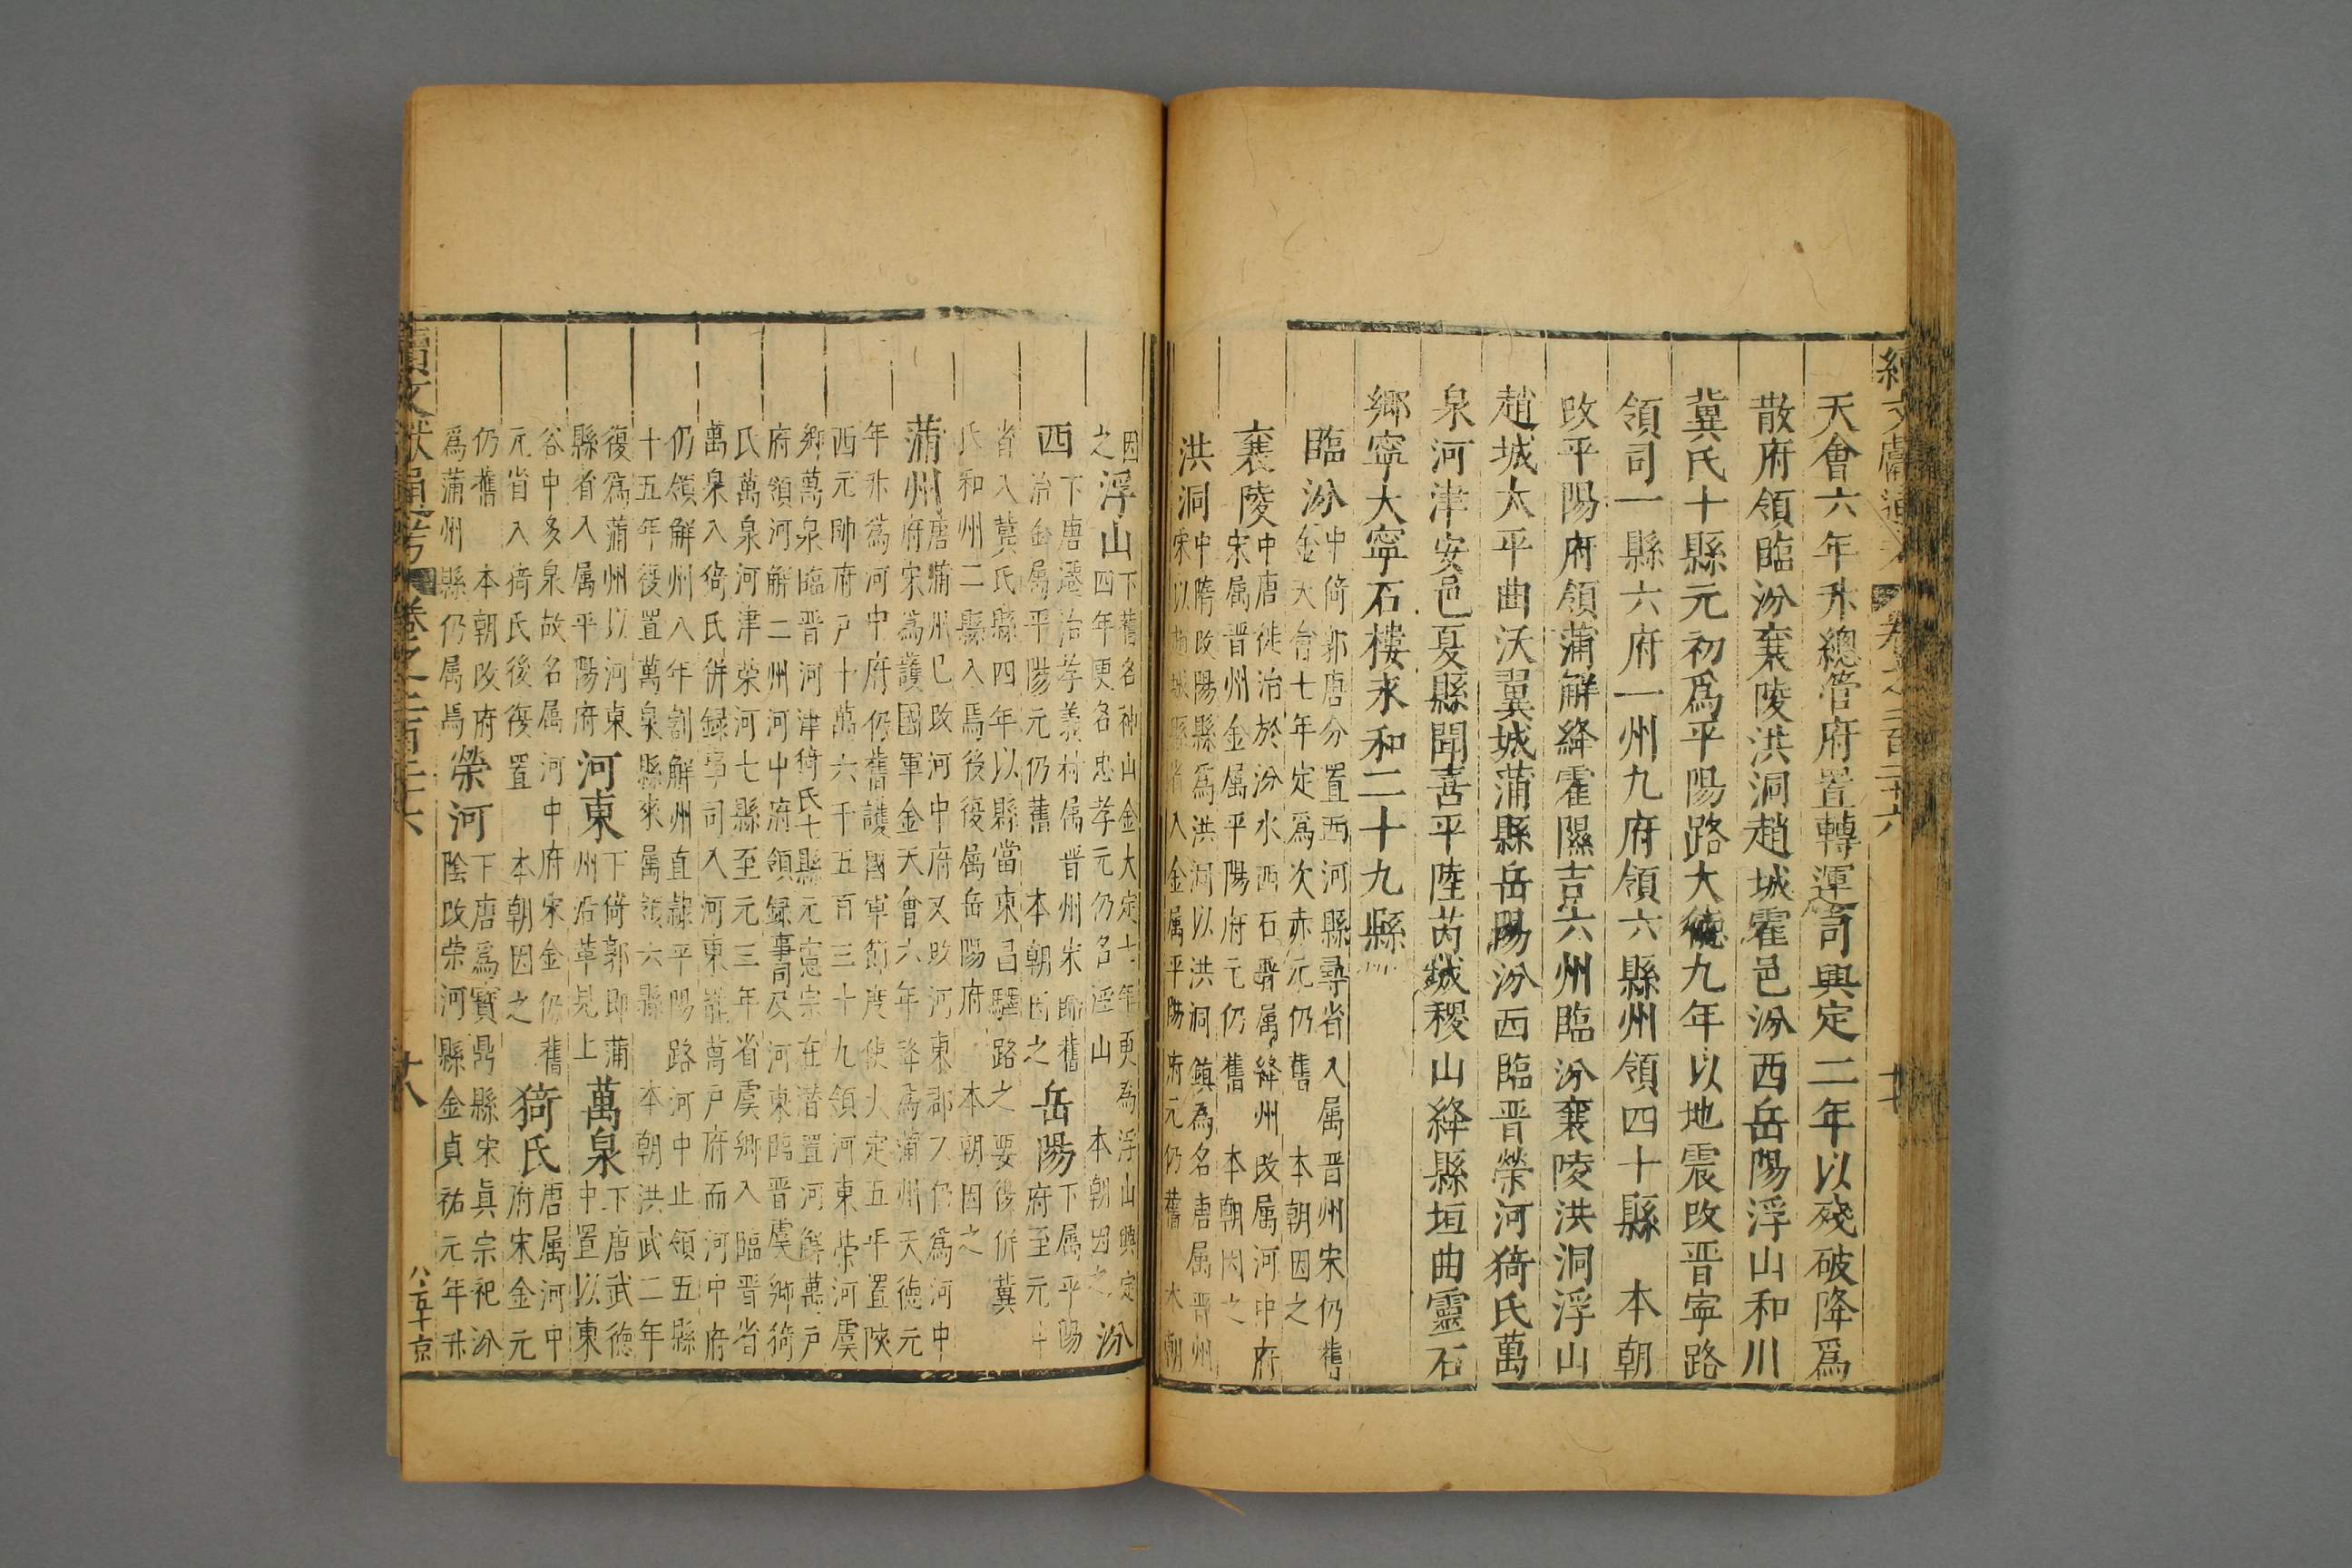 天會六年升總管府置轉運司興定二年以殘破降爲
散府領臨汾襄陵洪洞趙城霍邑汾西岳陽浮山和川
冀氏十縣元初爲平陽路大德九年以地震改晉寧路
領司一縣六府一州九府領六縣州領四十縣　本朝
改平陽府領蒲解絳霍隰吉六州臨汾襄陵洪洞浮山
趙城太平曲沃翼城蒲縣岳陽汾西臨晉榮河猗氏萬
泉河津安邑夏縣聞喜平陸芮城稷山絳縣垣曲靈石
鄉寧大寧石樓永和二十九縣
臨汾
中倚郭唐分置西河縣尋省入属晋州宋仍舊
金天會七年定爲次赤元仍舊　本朝因之
襄陵
中唐徙治於汾水西石晋属絳州改属河中府
宋属晋州金属平陽府元仍舊　本朝因之
洪洞
中隋改陽縣爲洪洞以洪洞鎮為名唐属晋州
宋以趙城縣省入金属平陽府元仍舊　本朝
因之
浮山
下舊名神山金大定七年更為浮山興定
四年更名忠孝元仍名浮山　本朝因之
汾西
下唐遷治孝義村属晋州宋郇舊
治金属平陽元仍舊　本朝因之
岳陽
下属平陽府至元
省入冀氏縣四年以縣當東昌驛路之要復併冀
氏和州二縣入焉後復属岳陽府　本朝因之
蒲州
唐蒲州已改河中府又改河東郡又仍爲河中
府宋爲護國軍金天會六年降為蒲州天德元
年升爲河中府仍舊護國軍節度使大定五年置陝
西元帥府户十萬六千五百三十九領河東榮河虞
鄉萬泉臨晋河津猗氏七縣元憲宗在潜置河解萬户
府領河解二州河中府領録事司及河東臨晋虞鄉猗
氏萬泉河津榮河七縣至元三年省虞鄉入臨晋省
萬泉入猗氏併録事司入河東罷萬戶府而河中府
仍領解州八年割解州直隸平陽路河中止領五縣
十五年復置萬泉縣來属領六縣　本朝洪武二年
復爲蒲州以河東
縣省入属平陽府
河東
下倚郭即蒲
州沿革見上
萬泉
下唐武德
中置以東
谷中多泉故名属河中府宋金仍舊
元省入猗氏後復置　本朝因之
猗氏
唐属河中
府宋金元
仍舊　本朝改府
爲蒲州縣仍属焉
榮河
下唐爲寳鼎縣宋真宗祀汾
陰改榮河縣金貞祐元年升
續文獻通考　卷之二百二十六
十八